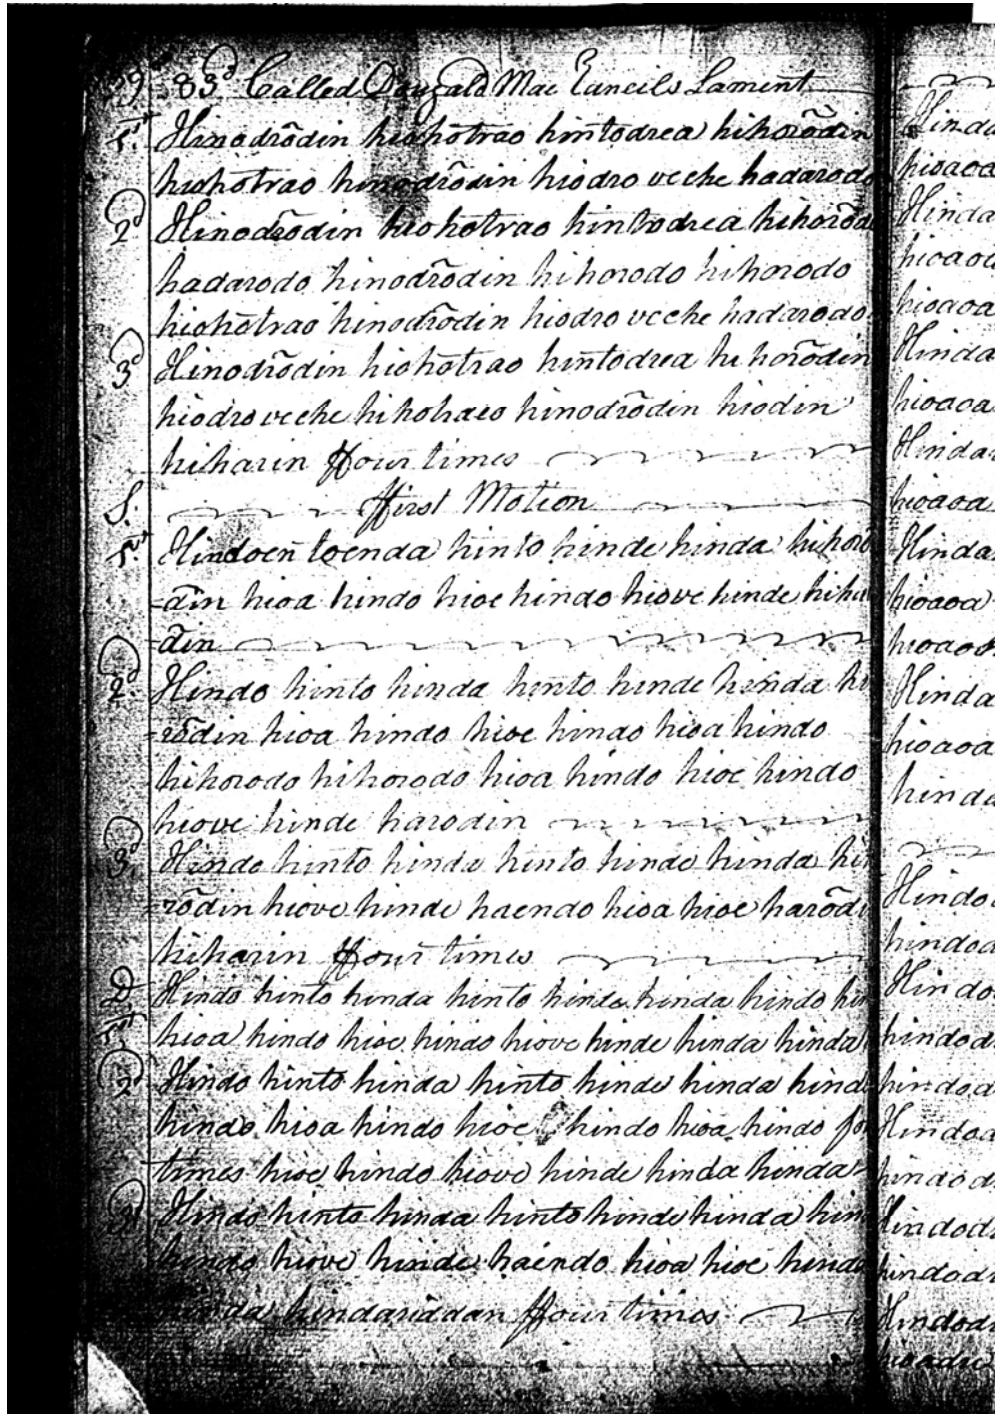 29 83d Called Dougald Mac Raneils Lament
1st Hinodrōdin hiohōtrao hintodrea hihorōdin
hiohōtrao hinodrōdin hiodro veche hadarodo
2d Hinodrōdin hiohotrao hintodrea hihorōdi
hadarodo hinodrōdin hihorodo hihorodo
hiohōtrao hinodrōdin hiodro veche hadarodo
3d Hinodrōdin hiohōtrao hintodrea hihorōdin
hiodro veche hihotraeo hinodrōdin hiodin
hiharin ffour times
S. ffirst Motion
1st Hindoen toenda hinto hinde hinda hihorō
=din hioa hindo hioe hindo hiove hinde hiha
=din
2d Hindo hinto hinda hinto hinde hinda hi
=rōdin hioa hindo hioe hindo hioa hindo
hihorodo hihorodo hioa hindo hioe hindo
hiove hinde harodin
3d Hindo hinto hinda hinto hinde hinda hi
=rōdin hiove hinde haendo hioa hioe harōdi
hiharin ffour times
D Hindo hinto hinda hinto hinde hinda hindo hin
1st hioa hindo hioe hindo hiove hinde hinda hinda
2d Hindo hinto hinda hinto hinde hinda hind
hindo hioa hindo hioe hindo hioa hindo fo
times hioe hindo hiove hinde hinda hinda
3d Hindo hinto hinda hinto hinde hinda hin
hindo hiove hinde haendo hioa hioe hindo
hinda hindariddan ffour times
Hinda
hioaoa
Hinda
hioaoa
hioaoa
Hinda
hioaoa
Hindar
hioaoa
Hinda
hioaoa
hioaoa
Hinda
hioaoa
hinda
Hindo
hindod
Hindo
hindod
hindod
Hindod
hindod
Hindod
hindod
Hindod
hioadu